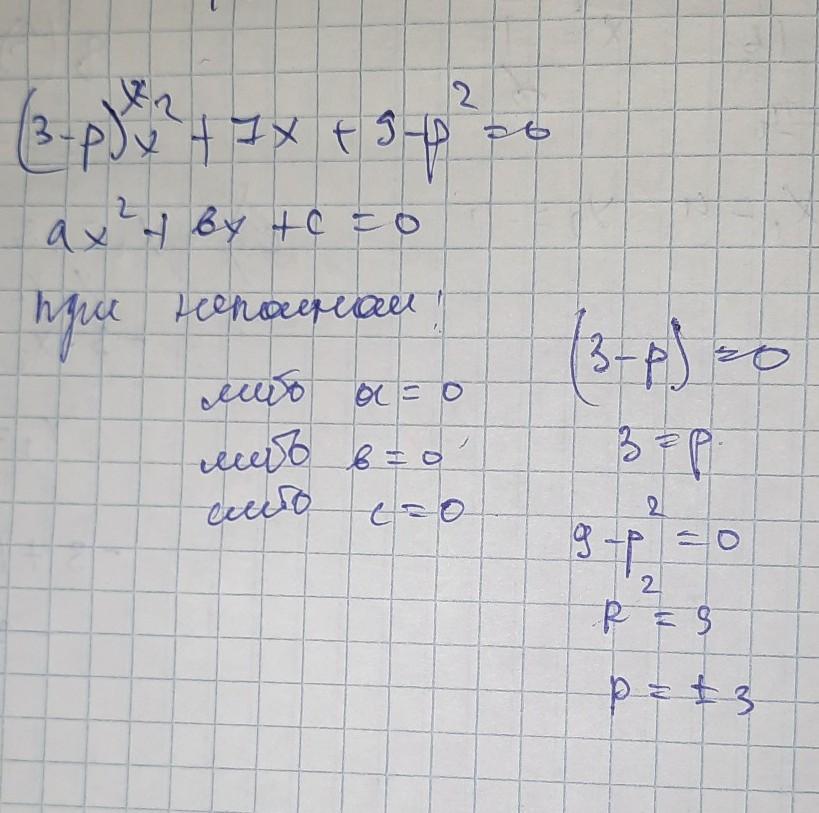 (3-p)x² + 7x + 9-p² = 0
ax² + bx + c = 0
при неполном:
либо a = 0
либо b = 0
либо c = 0
(3-p) = 0
3 = p
9-p² = 0
p² = 9
p = ± 3